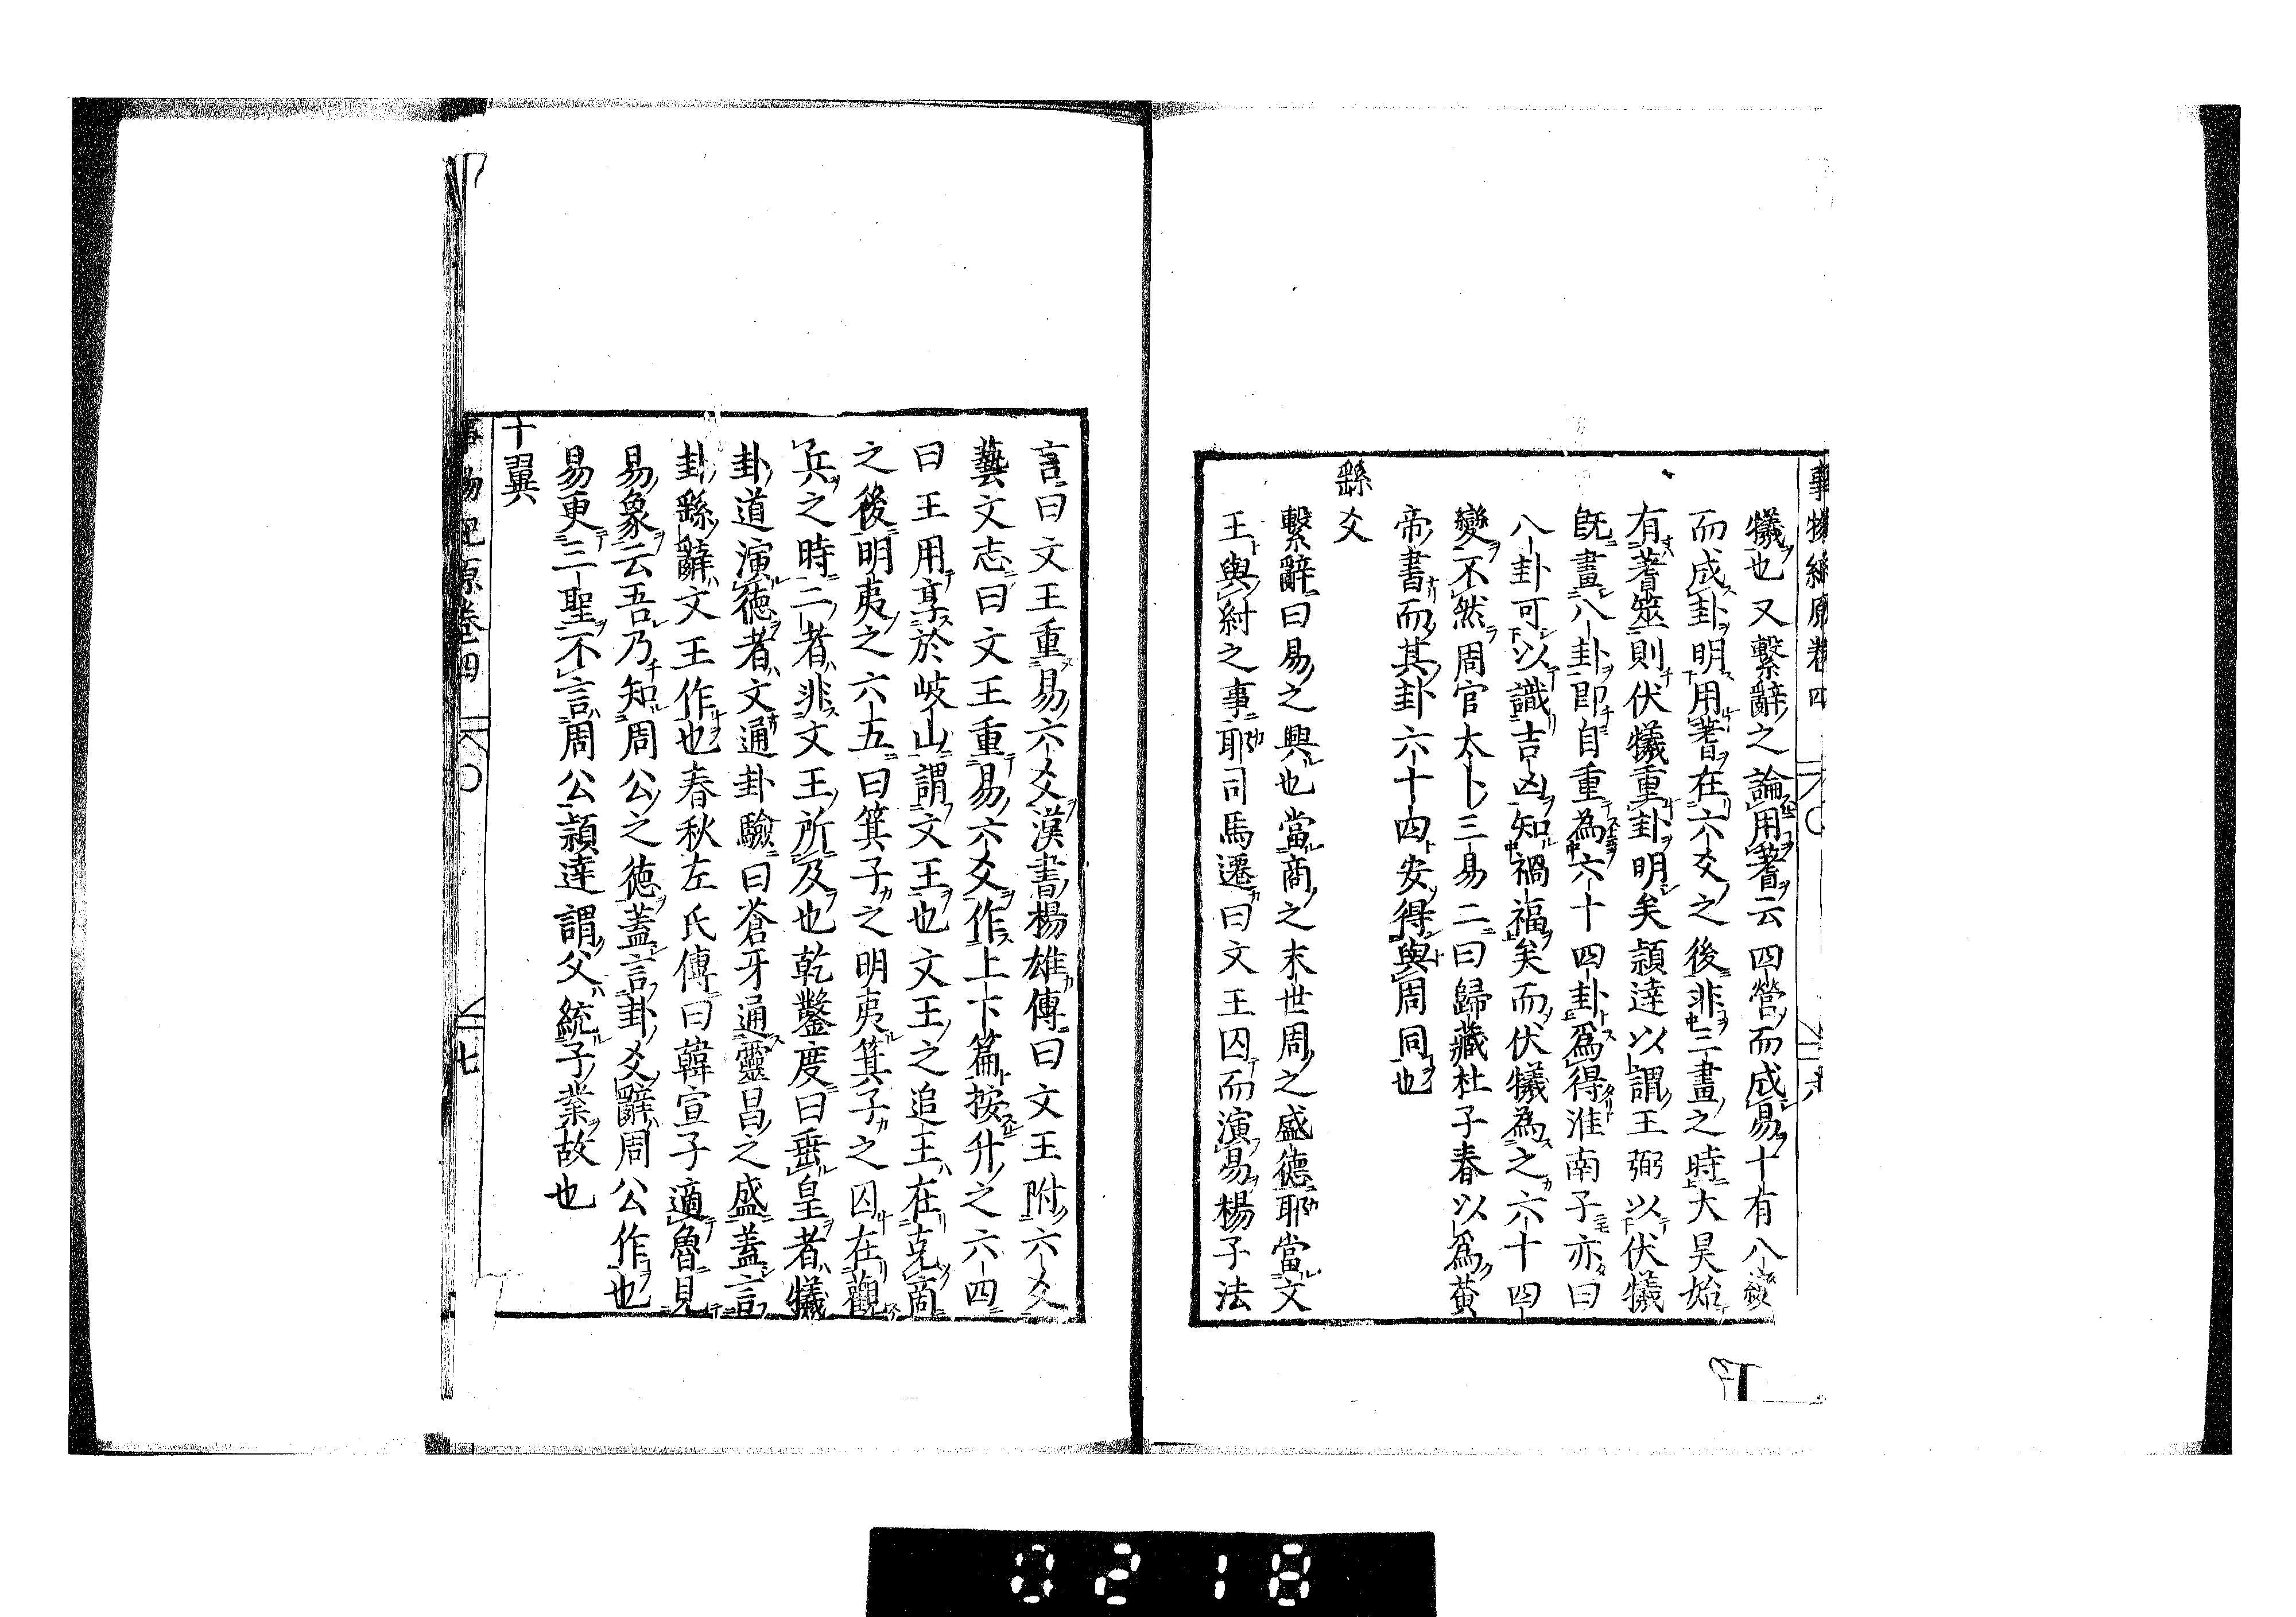 事物紀原卷四
犧也又繫辭之論用蓍云四營而成易十有八變
而成卦明用蓍在六爻之後非三畫之時大昊始
有蓍筮則伏犧重卦明矣頴達以謂王弼以伏犧
旣畫八卦即自重為六十四卦爲得淮南子亦曰
八卦可以識吉凶知禍福矣而伏犧為之六十四
變不然周官太卜三易二曰歸藏杜子春以爲黃
帝書而其卦六十四安得與周同也
繇爻
繫辭曰易之興也當商之末世周之盛德耶當文
王與紂之事耶司馬遷曰文王囚而演易楊子法
言曰文王重易六爻漢書楊雄傳曰文王附六爻
藝文志曰文王重易六爻作上下篇按升之六四
曰王用享於岐山謂文王也文王之追王在克商
之後明夷之六五曰箕子之明夷箕子之囚在觀
兵之時二者非文王所及也乾鑿度曰垂皇者犧
卦道演徳者文通卦驗曰蒼牙通靈昌之盛蓋言
卦繇辭文王作也春秋左氏傳曰韓宣子適魯見
易象云吾乃知周公之徳蓋言卦爻辭周公作也
易更三聖不言周公頴達謂父統子業故也
十翼
事物紀原卷四 七
0218